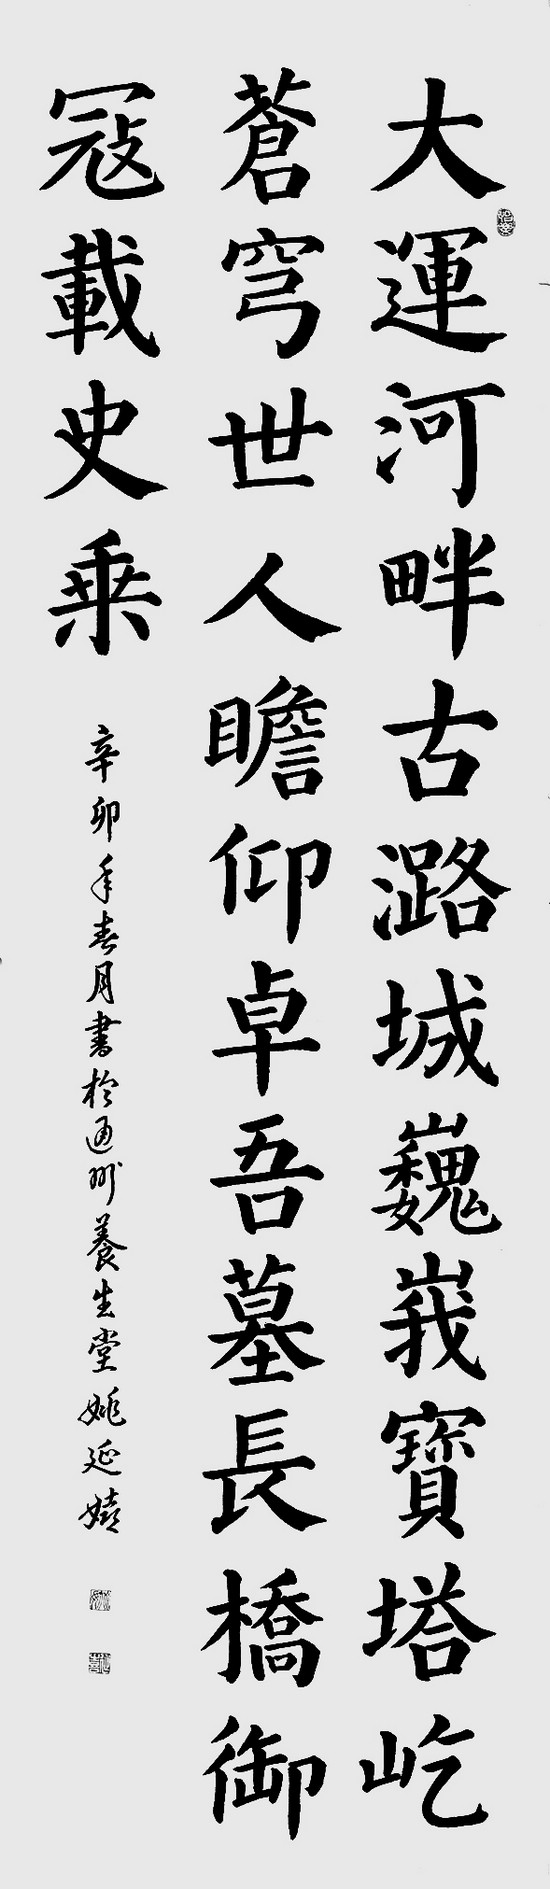 大運河畔古潞城巍峩寶塔屹
蒼穹世人瞻仰卓吾墓長橋御
寇載史乘
辛卯年春月書於通州養生堂姚延嬉